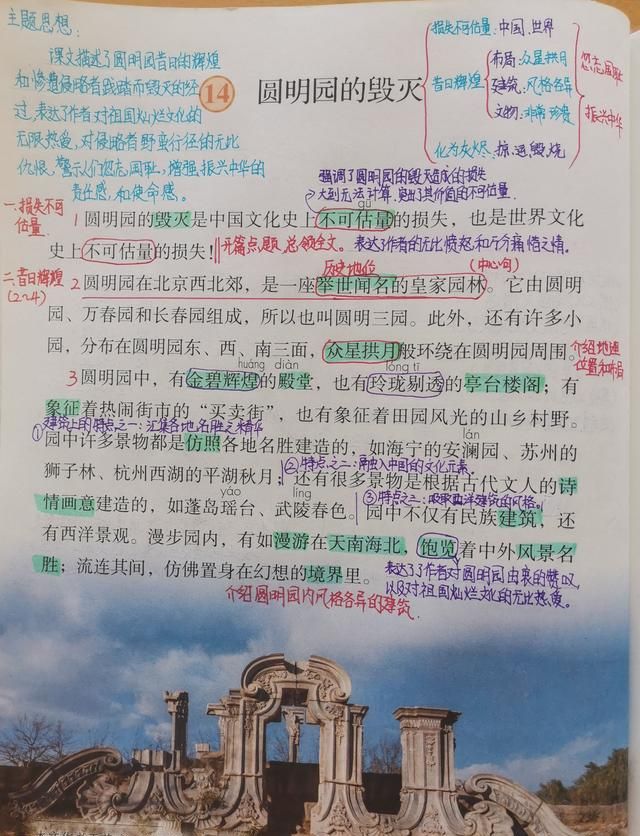 主题思想:
课文描述了圆明园昔日的辉煌
和惨遭侵略者践踏而毁灭的经
过,表达了作者对祖国灿烂文化的
无限热爱,对侵略者野蛮行径的无比
仇恨,警示人们勿忘国耻,增强振兴中华的
责任感和使命感。
损失不可估量:中国、世界
昔日辉煌
布局:众星拱月
建筑:风格各异
文物:非常珍贵
化为灰烬:掠、运、毁、烧
勿忘国耻
振兴中华
14 圆明园的毁灭
强调了圆明园的毁灭造成的损失
大到无法计算,突出其价值的不可估量.
一.损失不可
估量
gū
1圆明园的毁灭是中国文化史上不可估量的损失,也是世界文化
史上不可估量的损失!
开篇点题,总领全文。
表达了作者的无比愤怒和万分痛惜之情。
历史地位
(中心句)
二.昔日辉煌
(2~4)
2圆明园在北京西北郊,是一座举世闻名的皇家园林。它由圆明
园、万春园和长春园组成,所以也叫圆明三园。此外,还有许多小
园,分布在圆明园东、西、南三面,众星拱月般环绕在圆明园周围。
介绍地理
位置和布局
huáng diàn
lóng tī
3圆明园中,有金碧辉煌的殿堂,也有玲珑剔透的亭台楼阁;有
象征着热闹街市的“买卖街”,也有象征着田园风光的山乡村野。
①建筑上的特点之一:汇集各地名胜之精华
lán
园中许多景物都是仿照各地名胜建造的,如海宁的安澜园、苏州的
狮子林、杭州西湖的平湖秋月;还有很多景物是根据古代文人的诗
②特点之二:融入中国的文化元素.
yáo
líng
③特点之三:吸取西洋建筑的风格。
情画意建造的,如蓬岛瑶台、武陵春色。园中不仅有民族建筑,还
有西洋景观。漫步园内,有如漫游在天南海北,饱览着中外风景名
胜;流连其间,仿佛置身在幻想的境界里。
表达了作者对圆明园由衷的赞叹,
以及对祖国灿烂文化的无比热爱。
介绍圆明园内风格各异的建筑.